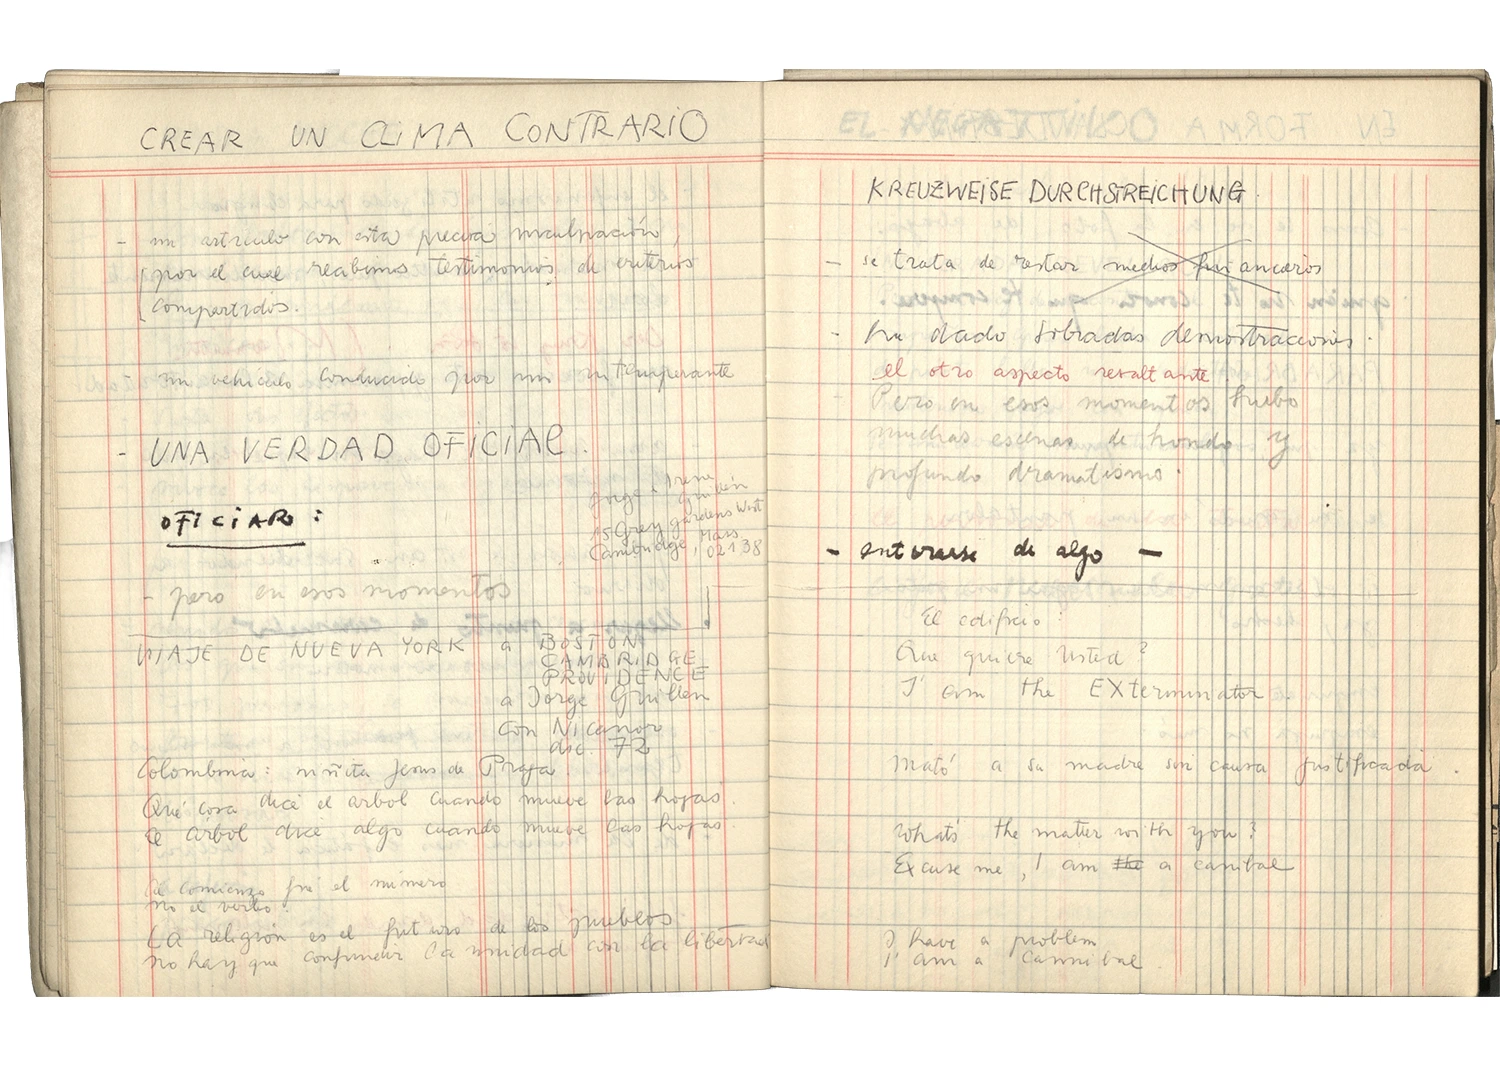 CREAR UN CLIMA CONTRARIO
- un artículo con esta precisa inculpación,
por el cual recibimos testimonios de criterios
compartidos.
- un vehículo conducido por un intemperante
- UNA VERDAD OFICIAL.
OFICIARO:
Jorge - Irene
Guillén
15 Grey gardens West
Cambridge, Mass
02138
- pero en esos momentos
VIAJE DE NUEVA YORK a BOSTON
CAMBRIDGE
PROVIDENCE
a Jorge Guillen
con Nicanor
dic. 72
Colombina: niñita Jesus de Praga.
Qué cosa dice el arbol cuando mueve las hojas.
El árbol dice algo cuando mueve las hojas.
Al comienzo fué el número
no el verbo.
La religión es el futuro de los pueblos
no hay que confundir la unidad con la libertad
KREUZWEISE DURCHSTREICHUNG.
- se trata de restar medios financieros
- ha dado sobradas demostraciones.
el otro aspecto resaltante
- Pero en esos momentos hubo
muchas escenas de hondo y
profundo dramatismo.
- enterarse de algo -
El edificio:
Que quiere Usted?
I' am the EXterminator
Mató a su madre sin causa justificada.
What's the matter with you?
Excuse me, I am the a canibal
I have a problem
I' am a cannibal.